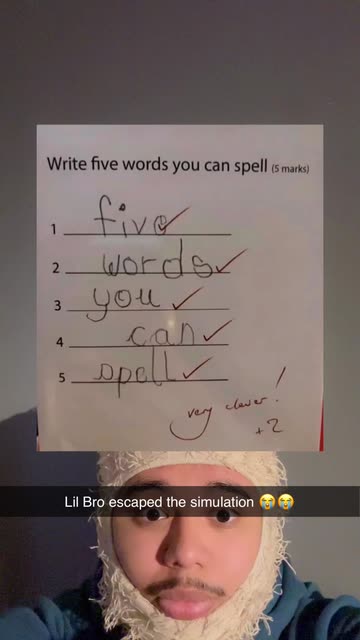 Write five words you can spell (5 marks)
1 five
2 words
3 you
4 can
5 spell
very clever!
+2
Lil Bro escaped the simulation 😭😭